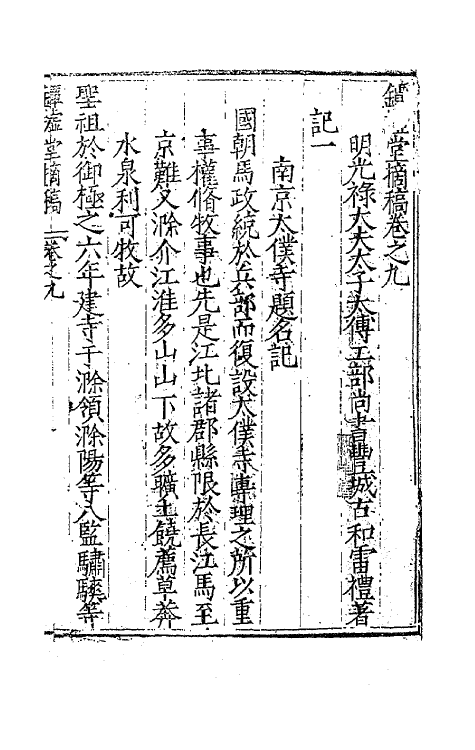 堂摘稿卷之九
明光祿大夫太子太傅工部尚書豐城古和雷禮著
記一
南京太僕寺題名記
國朝馬政統於兵部而復設太僕寺專理之所以重
事權脩牧事也先是江北諸郡縣限於長江馬至
京難又滁介江淮多山山下故多曠土饒薦草莽
水泉利可牧故
聖祖於御極之六年建寺于滁領滁陽等八監驌驥等
鐔墟堂摘稿 卷之九